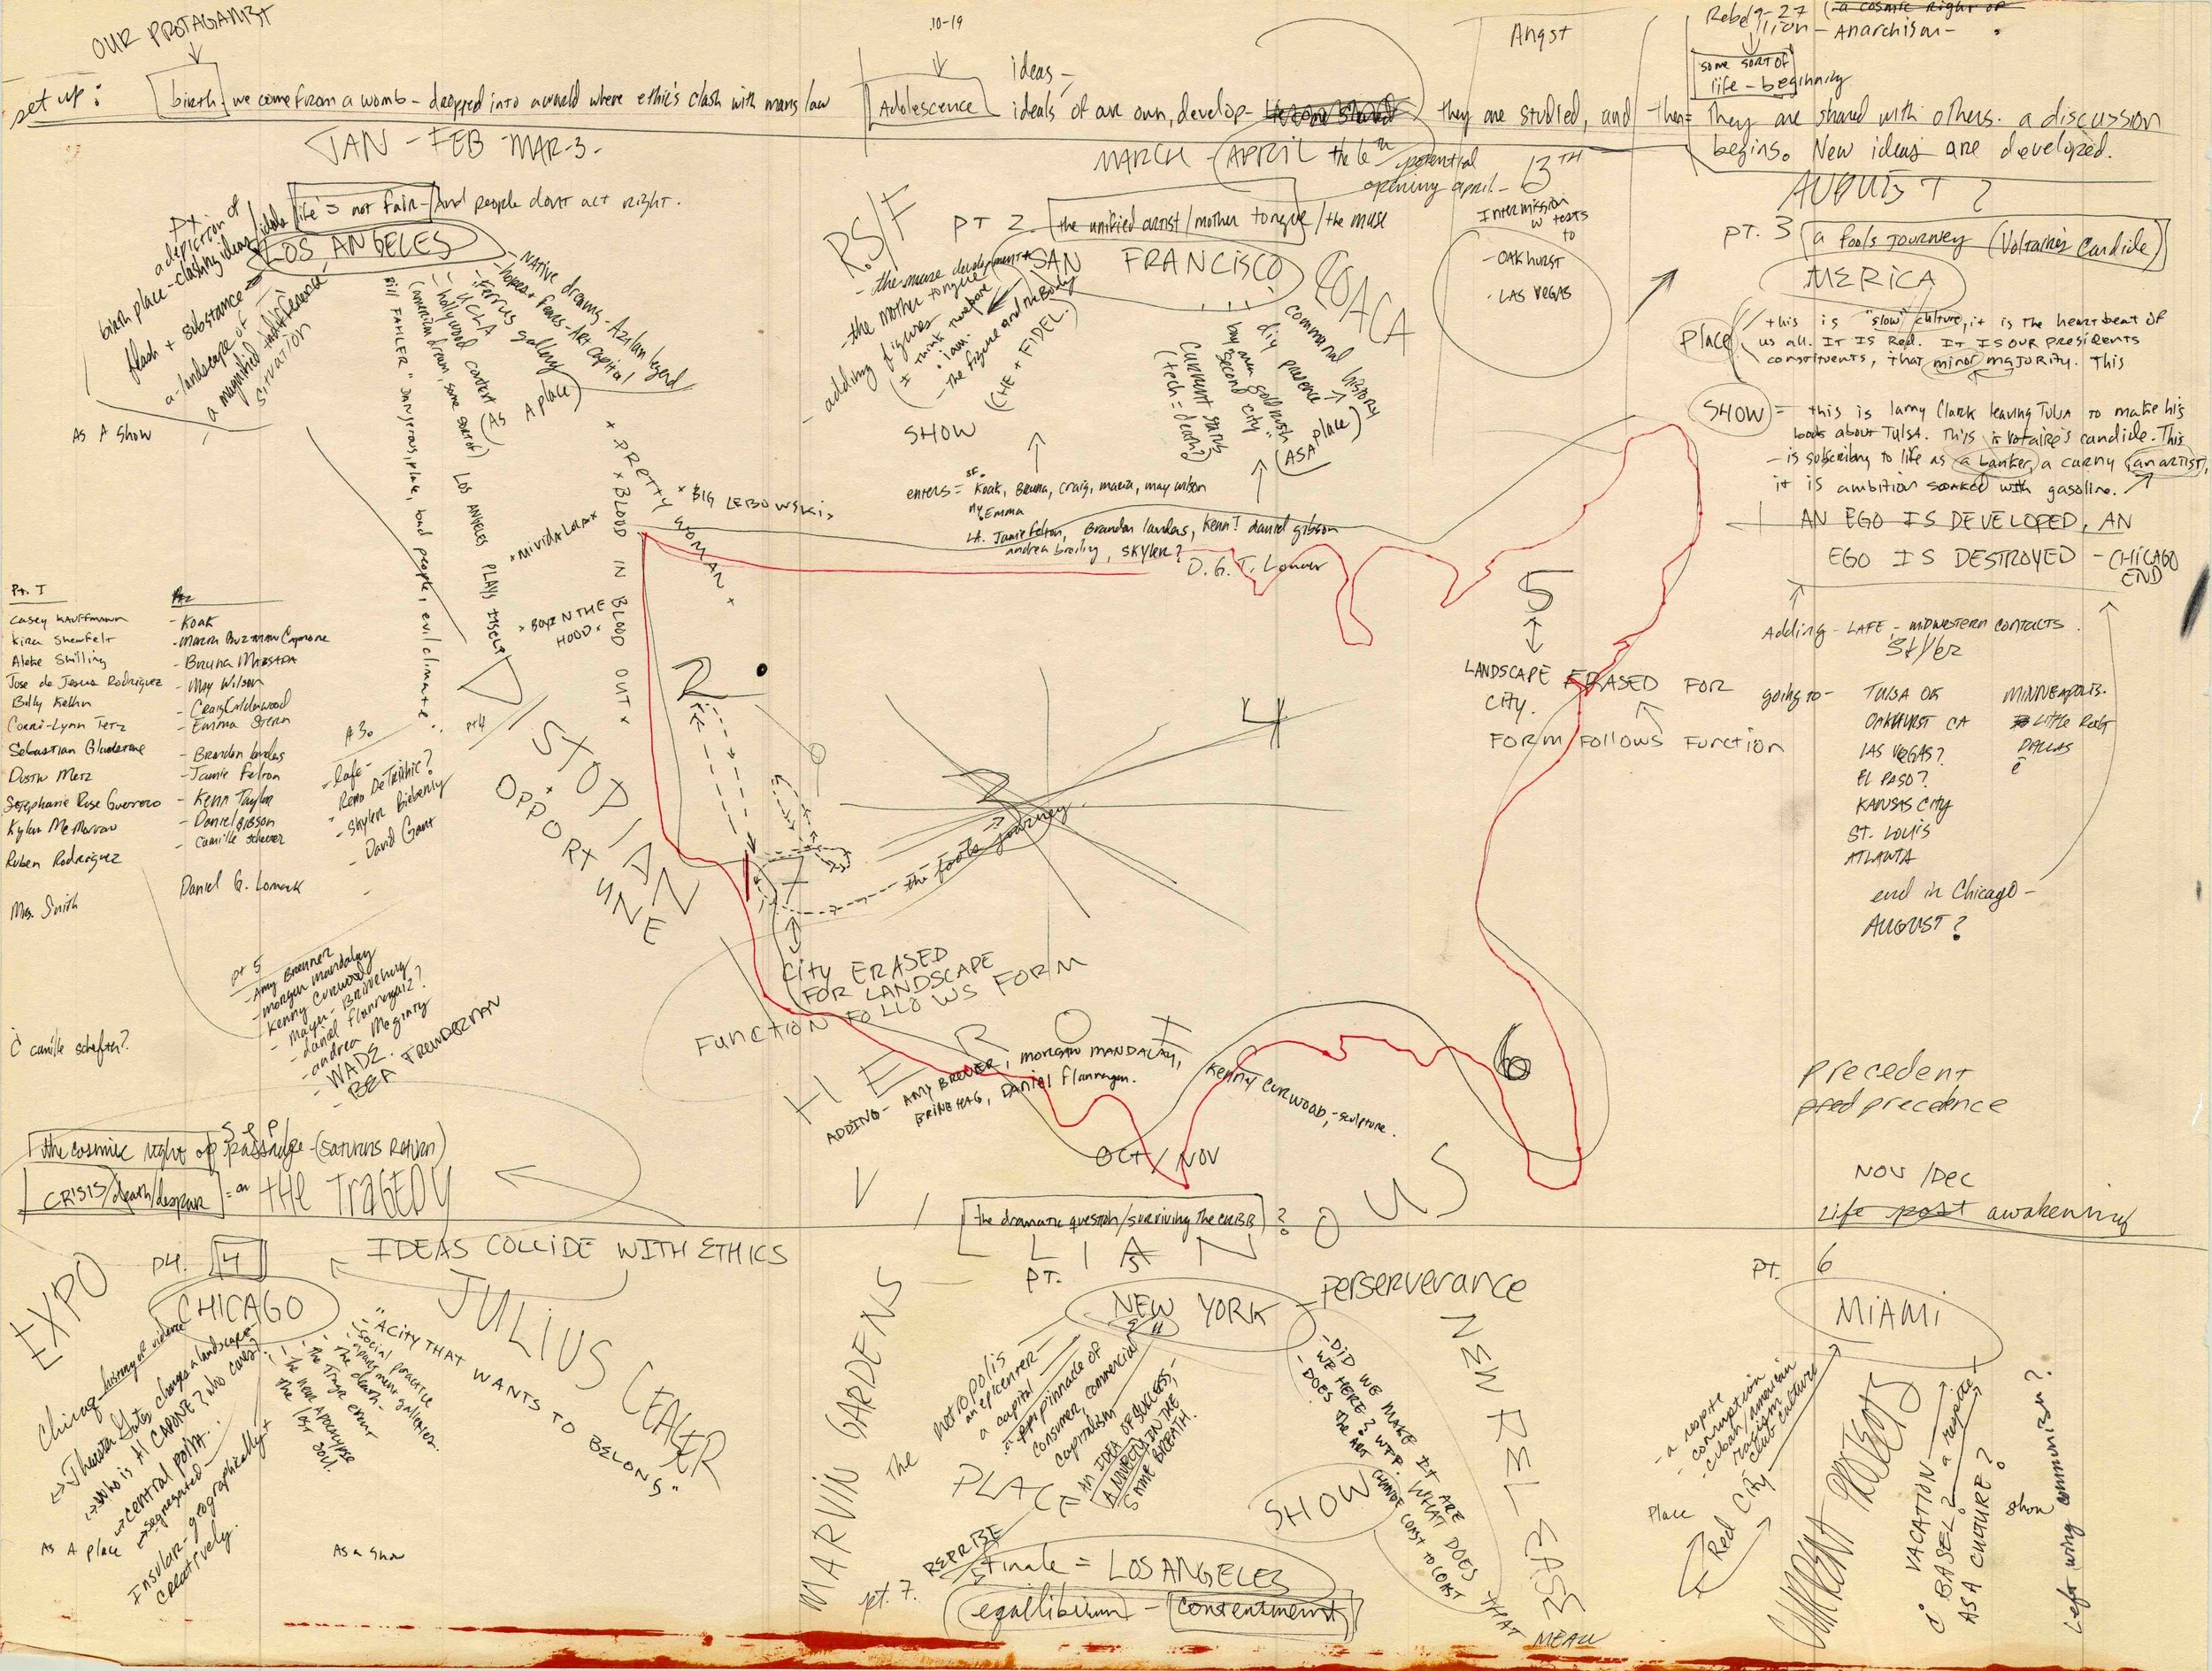 OUR PROTAGANIST
set up:
birth we come from a womb - dropped into a world where ethic's clash with mans law
JAN - FEB - MAR-3-
10-19
Adolescence
ideas -
ideals of our own, develop - they are studied, and then =
Angst
Rebellion - Anarchism -
9-27
a cosmic right of
some sort of
life - beginning
they are shared with others. a discussion
begins. New ideas are developed.
MARCH - APRIL the 6th potential
opening april - 13TH
AUGUST ?
life's not fair - And people dont act right.
LOS ANGELES
a depiction of
birth place - clashing ideas/ideals
flash + substance
a - landscape of
a magnified indifference
situation
As A Show
- NATIVE dreams - Azslan legend
- hopes + fears - Art capital
- Ferrus gallery
- UCLA
- hollywood context (AS A place)
Bill FAHLER "Dangerous, place, bad people, evil climate."
LOS ANGELES PLAYS ITSELF
+ PRETTY WOMAN +
× BLOOD IN BLOOD OUT ×
× BIG LEBOWSKI ×
× MIVIDA LOCA ×
× BOYZ N THE
HOOD ×
RS/F
PT 2. the unified artist/mother tongue/the muse
SAN FRANCISCO
COACA
- the muse development
- the mother tongue
- adding figures
(I think therefore
I am.
- The figure and the Body
(CHE + FIDEL.)
SHOW
communal history
diy presence
boy man gold rush
"second city"
Current santa
(tech = death?)
(AS A place)
SF.
enters = Koak, Bruna, Craig, maria, may wilson
NY, Emma
LA. Jamie felton, Brandon landers, Kenn! daniel gibson
andrea brosiky, SKYLER?
D. G. T. Lomar
Intermission
w texts
to
- OAKHURST
- LAS VEGAS
PT. 3 a fools journey (Voltaires Candide)
MERICA
Place
this is "slow" culture, it is the heartbeat of
us all. IT IS Red. IT IS OUR PRESIDENTS
constituents, that minor majority. This
SHOW = this is larry Clark leaving TULSA to make his
book about TULSA. This is Voltaire's candide. This
- is subscribing to life as a banker, a carny an artist,
it is ambition soaked with gasoline.
AN EGO IS DEVELOPED, AN
EGO IS DESTROYED - CHICAGO
END
Adding - LAFE - MIDWESTERN CONTACTS.
going to -
TULSA OK
OAKHURST CA
LAS VEGAS?
EL PASO?
KANSAS CITY
ST. LOUIS
ATLANTA
MINNEAPOLIS.
Little Rock
DALLAS
end in Chicago -
AUGUST?
Pt. I
Casey Kauffmann
Kira Shewfelt
Alake Shilling
Jose de Jesus Rodriguez
Billy Kelhn
Corri-Lynn Tetz
Sebastian Gladstone
Dustin Metz
Stephanie Rose Guerrero
Kylan McMorrow
Ruben Rodriguez
Mrs. Smith
- Koak
- Maria Guzman Capron
- Bruna Massada
- May Wilson
- Craig Calderwood
- Emma Stern
- Brandon landers
- Jamie Felton
- Kenn Taylor
- Daniel Gibson
- Camille Schefter
Daniel G. Lomak
pt 3.
- lafe -
- Reno DeTrikic?
- Skyler Bieberly
- David Gant
pt 4
DISTOPIAN
+
OPPORTUNE
2
1
3
4
5
6
- the fools journey -
LANDSCAPE ERASED FOR
City.
FORM FOLLOWS FUNCTION
City ERASED
FOR LANDSCAPE
FUNCTION FOLLOWS FORM
pt 5
- Amy Brenner
- Morgan Mandalay
- Kenny Curwood
- daniel flannegan?
- andrea Meginty
- WADE.
- BEA TREWDERMAN
camille schefter?
H E R O I
ADDING - AMY BREUER, MORGAN MANDALAY,
BRINBERG, DANIEL flannegan.
Kenny CURWOOD, - sculpture.
OCT/NOV
V I L L I A N O U S
the cosmic right of passage - (SATURNS RETURN)
CRISIS/death/despair = on THE TRAGEDY
the dramatic question/surviving the crisis ?
precedent
pred precedence
NOV /DEC
Life post awakening
IDEAS COLLIDE WITH ETHICS
EXPO
pt. 4
CHICAGO
Chiraq - history of violence
-> Theaster Gates changes a landscape
-> Who is Al CAPONE? who cares?
-> central point.
-> segregated
Insular - geographically +
creatively.
As A place
- "A CITY THAT WANTS TO BELONG"
- social practice
- apartment galleries.
- The death -
- the tragic event
- the near apocalypse
- the lost soul.
As a show
JULIUS CEASER
MARVIN GARDENS
PT. 5
NEW YORK - perserverance
The metropolis
- an epicenter
- a capital
- a pinnacle of
consumer, commercial
capitalism
AN IDEA OF SUCCESS,
SAME BREATH.
PLACE
- DID WE MAKE IT ARE
- WE HERE? WTF. WHAT DOES
- DOES THE ART CHANGE COAST TO COAST
THAT
MEAN
SHOW
NEW RELEASE
REPRISE
pt. 7. finale = LOS ANGELES
equilibrium - contentment
PT. 6
MIAMI
- a respite
- corruption
- cuban/american
- racism
- club culture
Place
Red City
CURRENT PROJECTS
VACATION - a respite
BASEL?
AS A CULTURE?
Show
Left wing communism?